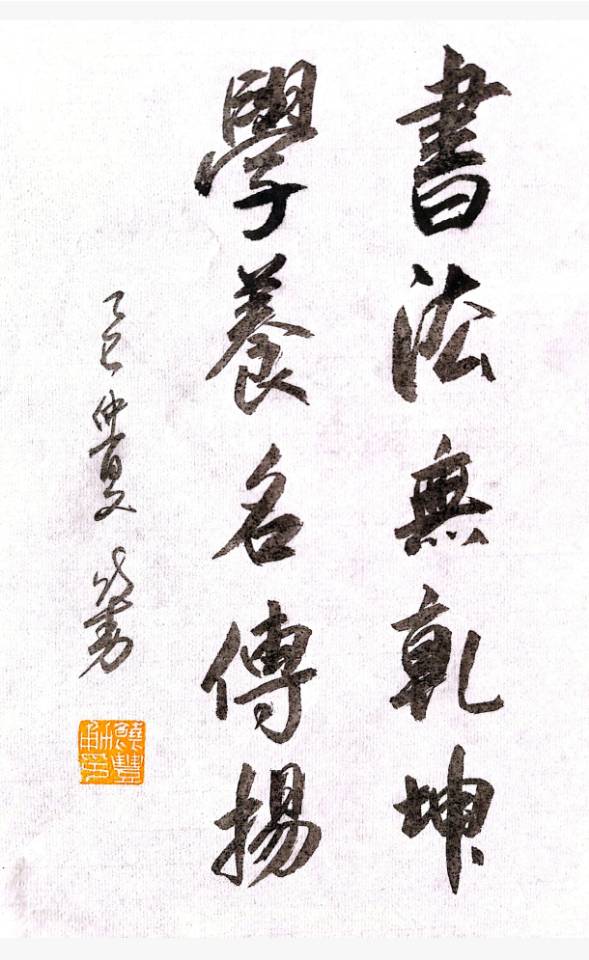 書法無乾坤
學養名傳揚
乙巳仲夏